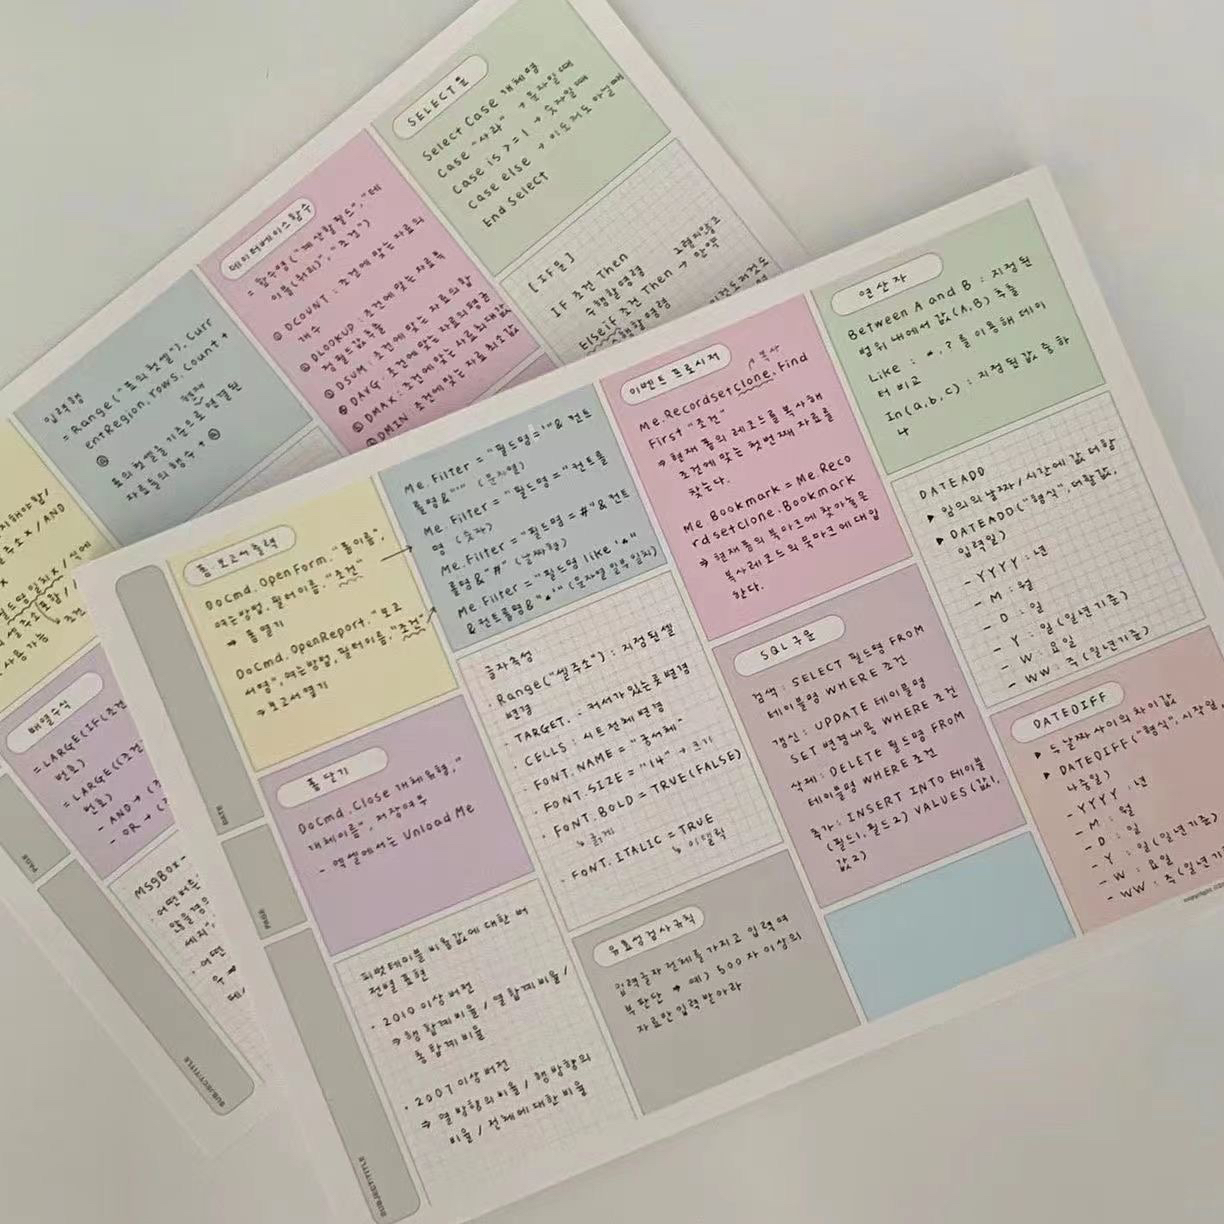 SELECT문
Select Case 개체명
case "사과" → 문자일 때
case is >= 1 → 숫자일 때
case else → 이도저도 아닐 때
End Select
[IF문]
IF 조건 Then
수행할명령
ElseIF 조건 Then → 만약
데이터베이스함수
= 함수명("계산할필드","테
이블(쿼리)","조건")
DCOUNT : 조건에 맞는 자료의
개수
DLOOKUP : 조건에 맞는 자료 특
정 필드값 추출
DSUM : 조건에 맞는 자료의 합
DAVG : 조건에 맞는 자료의 평균
DMAX : 조건에 맞는 자료 최대값
DMIN 조건에 맞는 자료 최소값
입력행
= Range("표의첫셀").Curr
entRegion.rows.Count +
표의 첫 셀을 기준으로 연결된
자료들의 행수 +
배열수식
= LARGE(IF(조건
번호)
= LARGE((조건
번호)
- AND →
- OR →
MSgBox-
PAGE
SUBJECT/TITLE
폼 보고서출력
DoCmd.OpenForm "폼이름",
여는방법, 필터이름, "조건"
⇒ 폼 열기
DoCmd.OpenReport. "보고
서명", 여는방법, 필터이름, "조건"
⇒ 보고서 열기
Me.Filter = "필드명='"& 컨트
롤명&"'" (문자열)
Me Filter = "필드명=" 컨트롤
명 (숫자)
Me.Filter = "필드명 = #"&컨트
롤명&"#" (날짜형)
Me Filter = "필드명 like '*"
&컨트롤명&"*'" (문자열 일부 일치)
이벤트 프로시저
복사
Me.RecordsetClone.Find
First "조건"
⇒ 현재 폼의 레코드를 복사해
조건에 맞는 첫번째 자료를
찾는다.
Me Bookmark = Me.Reco
rdsetclone.Bookmark
⇒ 현재 폼의 북마크에 찾아놓은
복사레코드의 북마크에 대입
한다.
연산자
Between A and B : 지정된
범위 내에서 값(A,B) 추출
Like : *, ? 를 이용해 데이
터 비교
In(a,b,c) : 지정된 값 중 하
나
DATEADD
▶ 임의의 날짜/시간에 값 더함
▶ DATEADD("형식",더할값,
입력일)
- YYYY : 년
- M : 월
- D : 일
- Y : 일(일년기준)
- W : 요일
- WW : 주(일년기준)
폼 닫기
DoCmd.Close 개체유형,"
개체이름", 저장여부
- 엑셀에서는 Unload Me
글자속성
Range("셀주소") : 지정된 셀
변경
· TARGET. : 커서가 있는 곳 변경
· CELLS : 시트 전체 변경
· FONT.NAME = "궁서체"
· FONT.SIZE = "14" → 크기
· FONT.BOLD = TRUE(FALSE)
↳ 굵게
· FONT.ITALIC = TRUE
↳ 이탤릭
SQL구문
검색 : SELECT 필드명 FROM
테이블명 WHERE 조건
갱신 : UPDATE 테이블명
SET 변경내용 WHERE 조건
삭제 : DELETE 필드명 FROM
테이블명 WHERE 조건
추가 : INSERT INTO 테이블
(필드1,필드2) VALUES(값1,
값2)
DATEDIFF
▶ 두 날짜 사이의 차이값
▶ DATEDIFF("형식",시작일,
나중일)
- YYYY : 년
- M : 월
- D : 일
- Y : 일(일년기준)
- W : 요일
- WW : 주(일년기준
피벗 테이블 비율값에 대한 버
전별 표현
· 2010 이상 버전
⇒ 행 합계 비율 / 열 합계 비율 /
총 합계 비율
· 2007 이상 버전
⇒ 열 방향의 비율 / 행 방향의
비율 / 전체에 대한 비율
유효성검사규칙
입력 글자 전체를 가지고 입력 여
부 판단 ⇒ 예) 500자 이상의
자료만 입력 받아라
DATE
PAGE
SUBJECT/TITLE